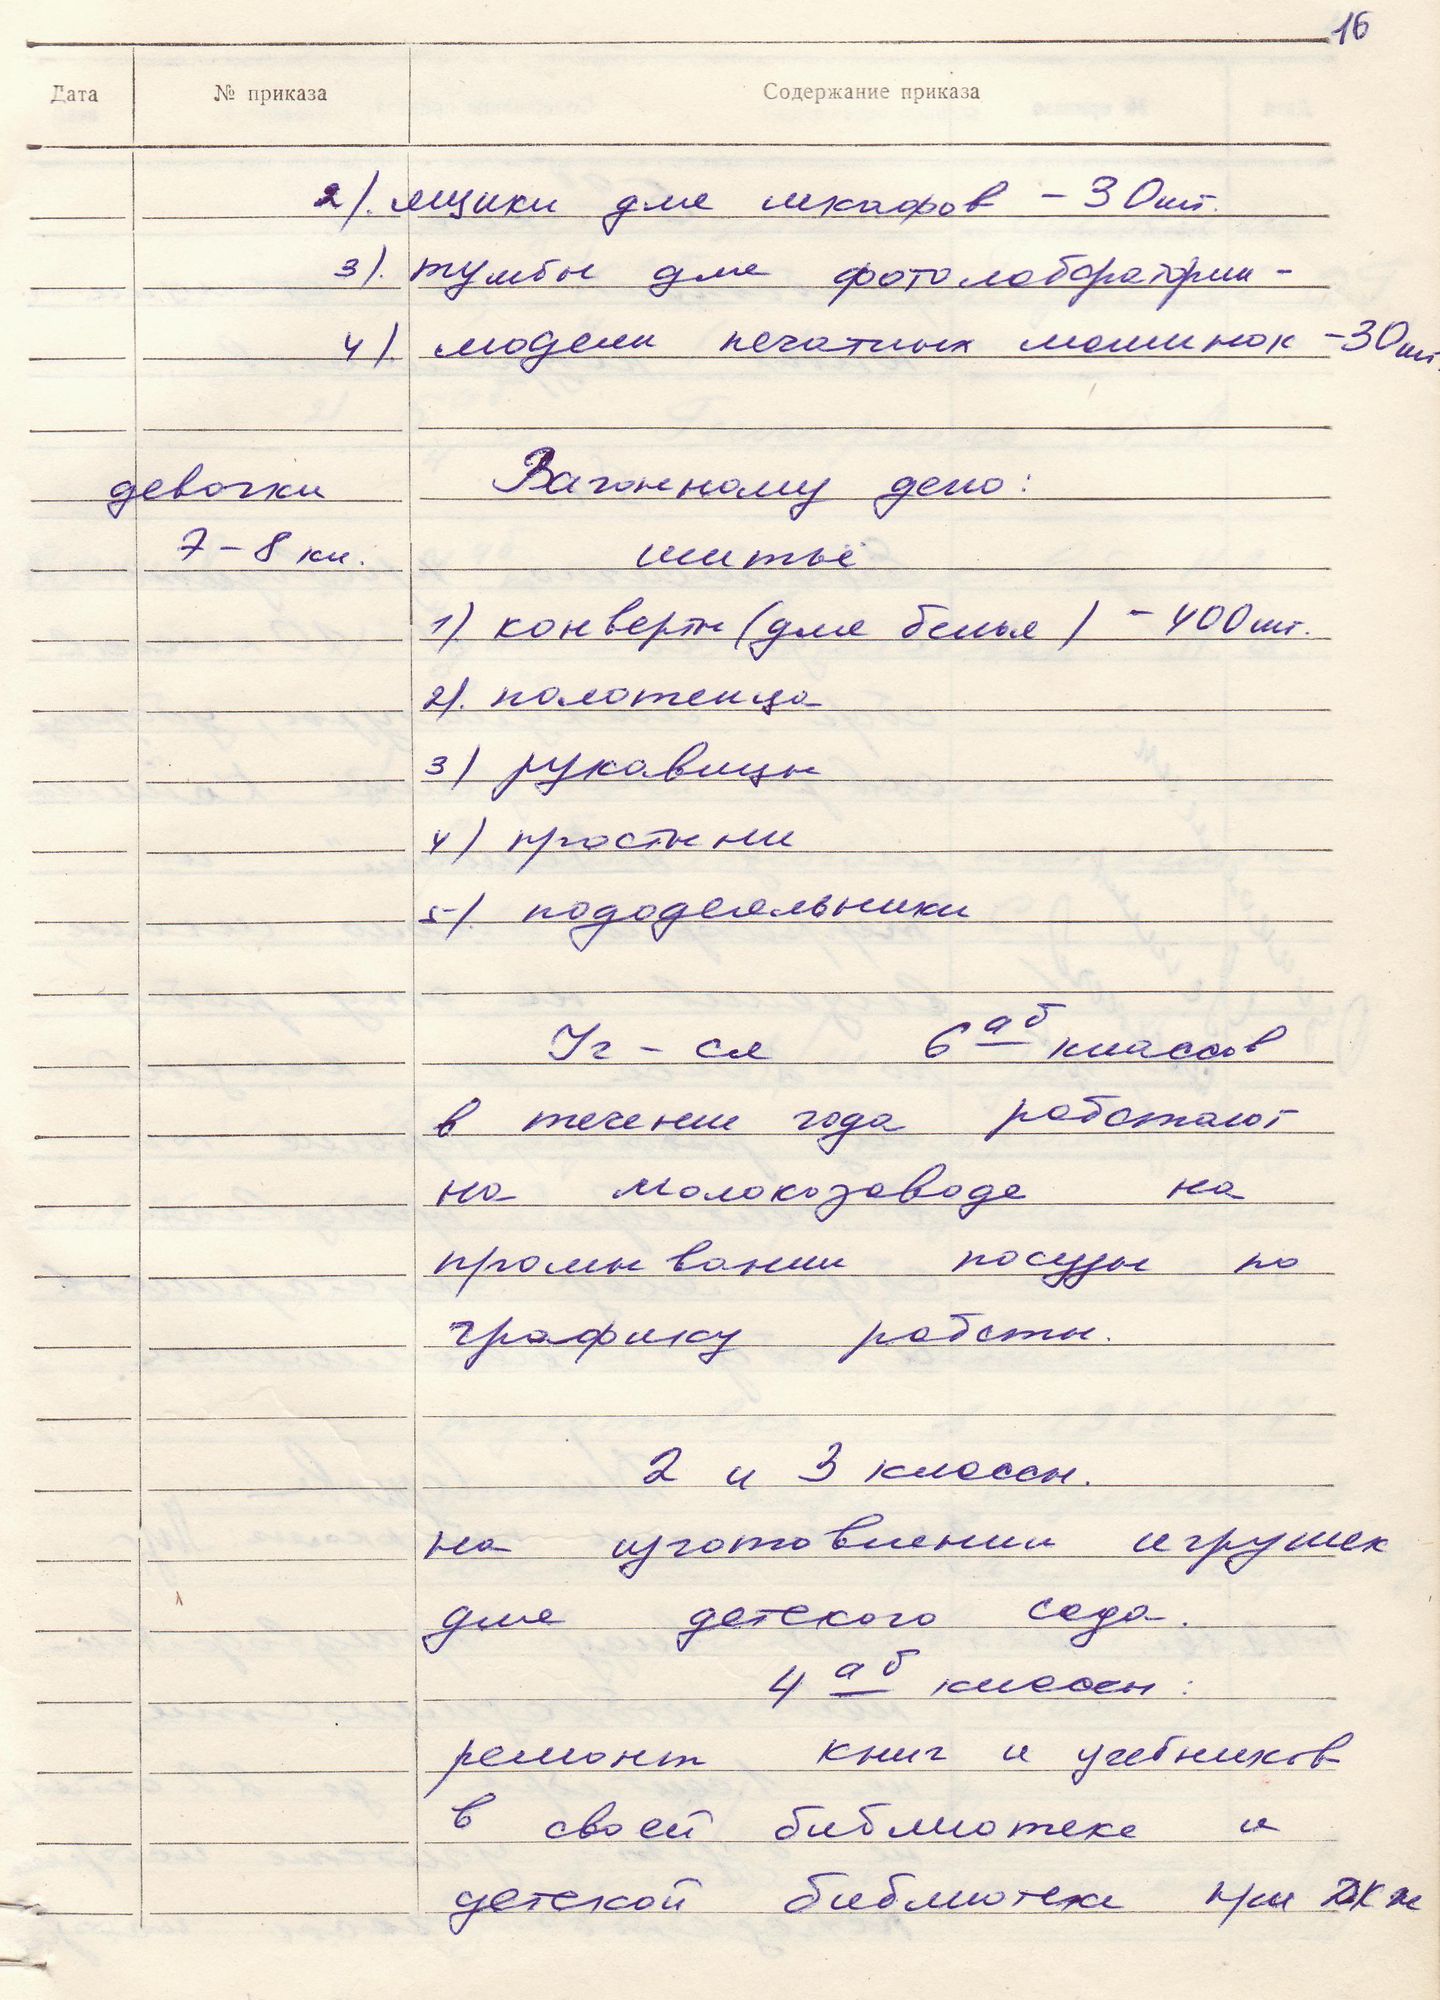 16
Дата № приказа Содержание приказа
2). ящики для шкафов - 30шт.
3). тумбы для фотолаборатории -
4). модели печатных машинок - 30шт.
девочки Вагонному депо:
7-8 кл. шитьё
1) конверты (для белья) - 400шт.
2). полотенца
3) рукавицы
4) простыни
5). пододеяльники
Уч-ся 6 аб классов
в течении года работают
на молокозаводе на
промывании посуды по
графику работы.
2 и 3 классы.
на изготовлении игрушек
для детского сада.
4 аб классы:
ремонт книг и учебников
в своей библиотеке и
детской библиотеки при ДКж